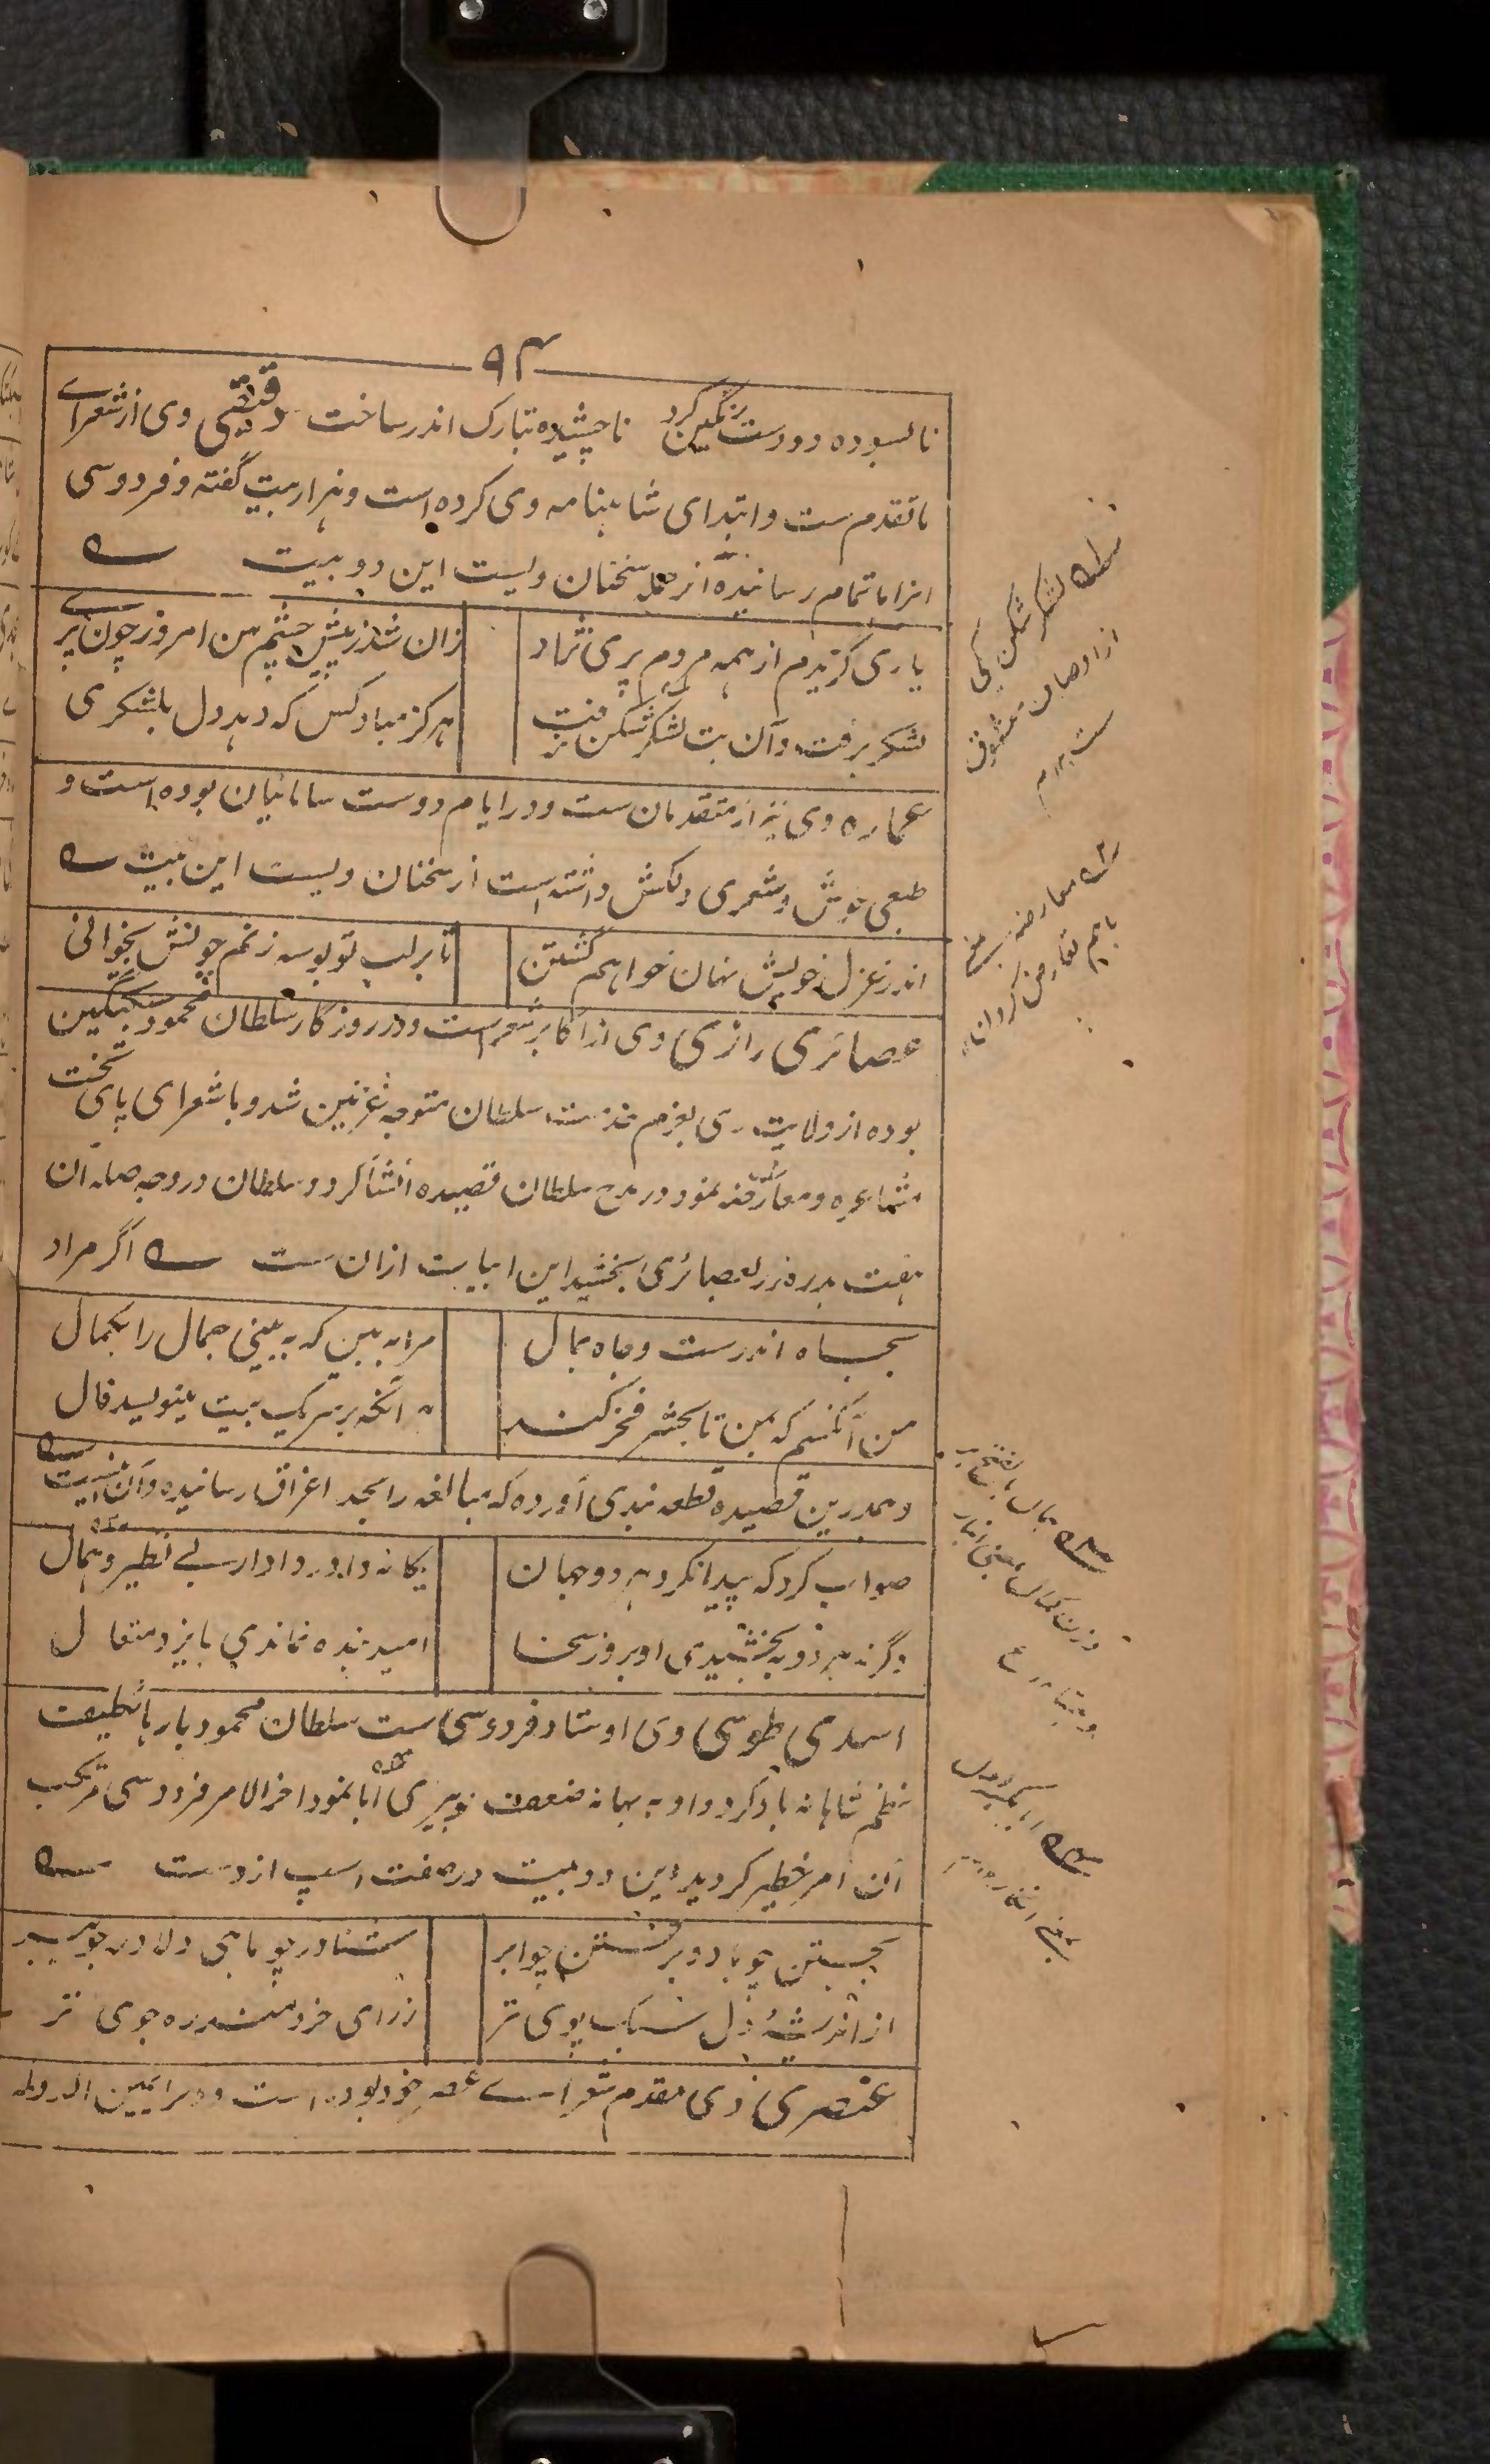 ۹۴
نا بسوده دو دست رنگین کرد ناچشیده بتارک اندر ساخت دقیقی وی از شعرای
ماتقدم ست و ابتدای شاهنامه وی کرده است و هزار بیت گفته و فردوسی
انرا باتمام رسانیده از جمله سخنان ویست این دو بیت
یاری گزیدم از همه مردم پری نژاد زان شد ز پیش چشم من امروز چون پری
لشکر برفت و آن بت لشکر شکن برفت هرگز مباد کس که دهد دل بلشکری
عماره وی نیز از متقدمان ست و در ایام دوست سامانیان بوده است و
طبعی خوش و شعری دلکش داشته است از سخنان ویست این بیت
اندر غزل خویش نهان خواهم گشتن تا بر لب تو بوسه زنم چونش بخوانی
عصائری رازی وی از اکابر شعراست و در روزگار سلطان محمود سبکتگین
بوده از ولایت ری بعزم خدمت سلطان متوجه غزنین شد و با شعرای پای تخت
مشاعره و معارضه نمود در مدح سلطان قصیده انشا کرد و سلطان در وجه صله آن
هفت بدره زر بعصائری بخشید این ابیات ازان ست اگر مراد
بجاه اندرست و جاه بمال مرا به بین که به بینی جمال را بکمال
من آنکسم که بمن تا بحشر فخر کند هر آنکه بر سر یک بیت بنویسد قال
و همدرین قصیده قطعه بندی آورده که مبالغه را بحد اغراق رسانیده و آن اینست
صواب کرد که پیدا نکرد هر دو جهان یگانه داور دادار بی نظیر و همال
وگرنه هر دو ببخشیدی او بروز سخا امید بنده نماندی بایزد متعال
اسدی طوسی وی اوستاد فردوسی ست سلطان محمود بارها تکلیف
نظم شاهانه باد کرد و او به بهانه ضعف و پیری ابا نمود اخر الامر فردوسی مرتکب
آن امر خطیر گردید این دو بیت در صفت اسپ ازوست
بجستن چو باد و برفتن چو ابر شناور چو ماهی دلاور چو ببر
از اندیشهٔ دل سبک پوی تر ز رای خردمند ره جوی تر
عنصری وی مقدم شعرای عصر خود بوده است و در ایام یمین الدوله
لشکر شکن یکی
از اوصاف معشوق
ست
معارضه
باهم تعارض کردن